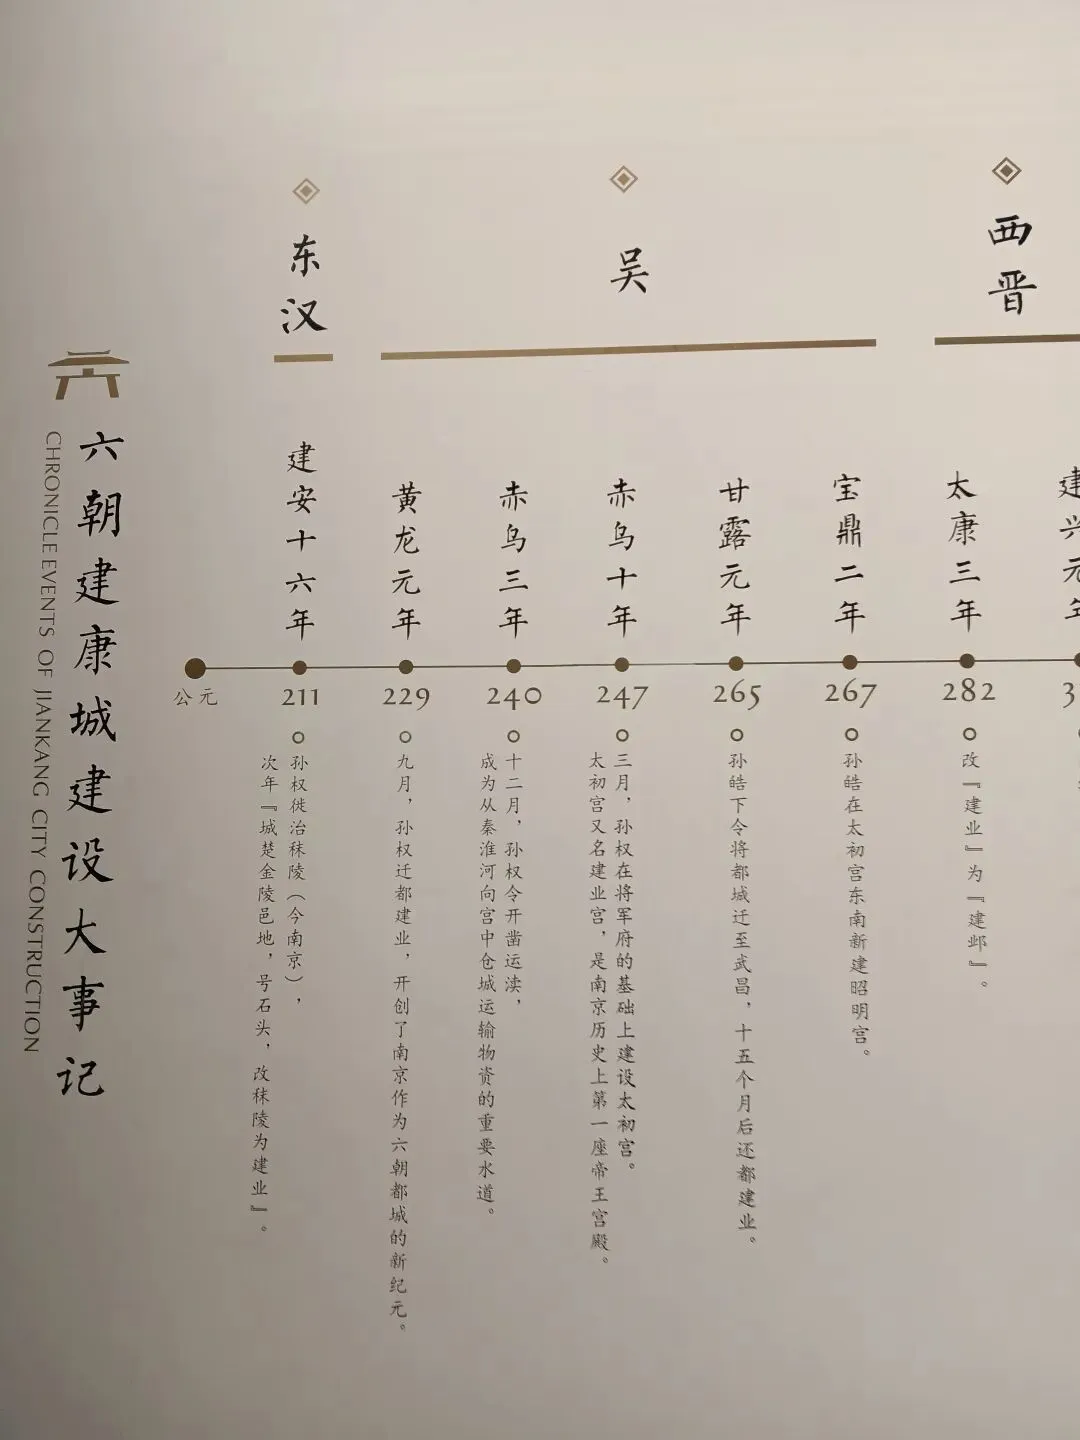 六朝建康城建设大事记
CHRONICLE EVENTS OF JIANKANG CITY CONSTRUCTION
东汉
吴
西晋
公元
建安十六年
211
孙权徙治秣陵（今南京），
次年『城楚金陵邑地，号石头，改秣陵为建业』。
黄龙元年
229
九月，孙权迁都建业，开创了南京作为六朝都城的新纪元。
赤乌三年
240
十二月，孙权令开凿运渎，
成为从秦淮河向宫中仓城运输物资的重要水道。
赤乌十年
247
三月，孙权在将军府的基础上建设太初宫。
太初宫又名建业宫，是南京历史上第一座帝王宫殿。
甘露元年
265
孙皓下令将都城迁至武昌，十五个月后还都建业。
宝鼎二年
267
孙皓在太初宫东南新建昭明宫。
太康三年
282
改『建业』为『建邺』。
建兴元年
3